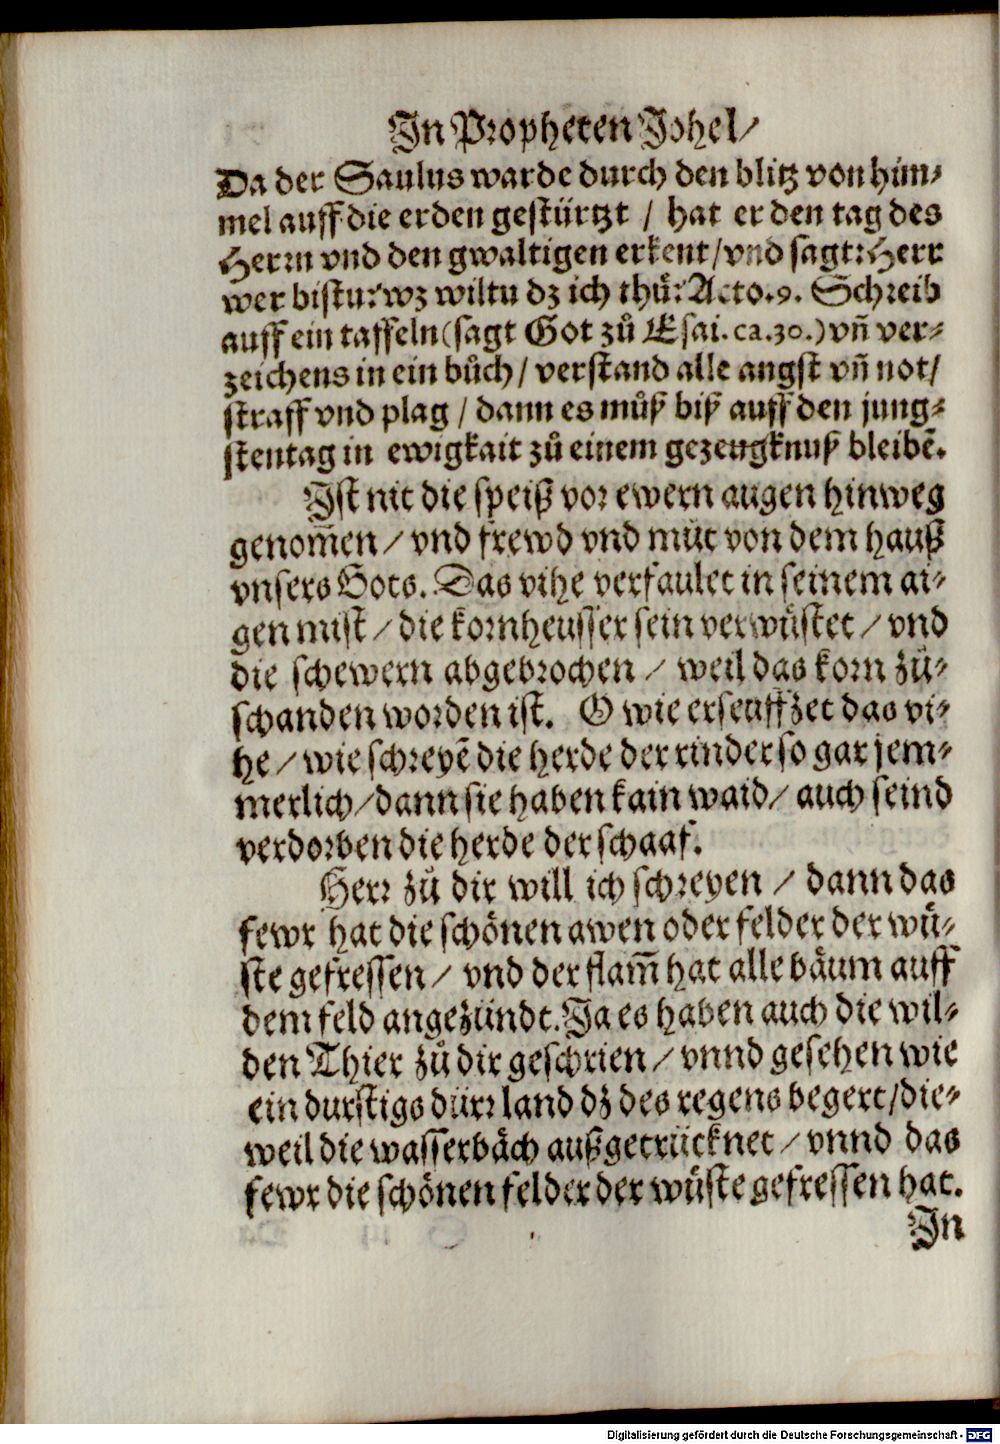 In Propheten Johel/
Da der Saulus warde durch den blitz von him⸗
mel auff die erden gestürtzt / hat er den tag des
Herrn vnd den gwaltigen erkent/vnd sagt: Herr
wer bistu: wz wiltu dz ich thuͤ: Acto.9. Schreib
auff ein taffeln (sagt Got zuͦ Esai. ca.30.) vñ ver⸗
zeichens in ein buͦch / verstand alle angst vñ not/
straff vnd plag / dann es muͦß biß auff den jung⸗
stentag in ewigkait zuͦ einem gezeugknuß bleibẽ.
Ist nit die speiß vor ewern augen hinweg
genom̃en / vnd frewd vnd muͦt von dem hauß
vnsers Gots. Das vihe verfaulet in seinem ai⸗
gen mist / die kornheusser sein verwuͤstet / vnd
die schewern abgebrochen / weil das korn zuͦ⸗
schanden worden ist. O wie erseuffzet das vi⸗
he / wie schreyẽ die herde der rinder so gar jem⸗
merlich / dann sie haben kain waid / auch seind
verdorben die herde der schaaf.
Herr zuͦ dir will ich schreyen / dann das
fewr hat die schoͤnen awen oder felder der wuͤ⸗
ste gefressen / vnd der flam̃ hat alle baͤum auff
dem feld angezündt. Ja es haben auch die wil⸗
den Thier zuͦ dir geschrien / vnnd gesehen wie
ein durstigs dürr land dz des regens begert/die⸗
weil die wasserbaͤch außgetrücknet / vnnd das
fewr die schoͤnen felder der wuͤste gefressen hat.
In
Digitalisierung gefördert durch die Deutsche Forschungsgemeinschaft - DFG